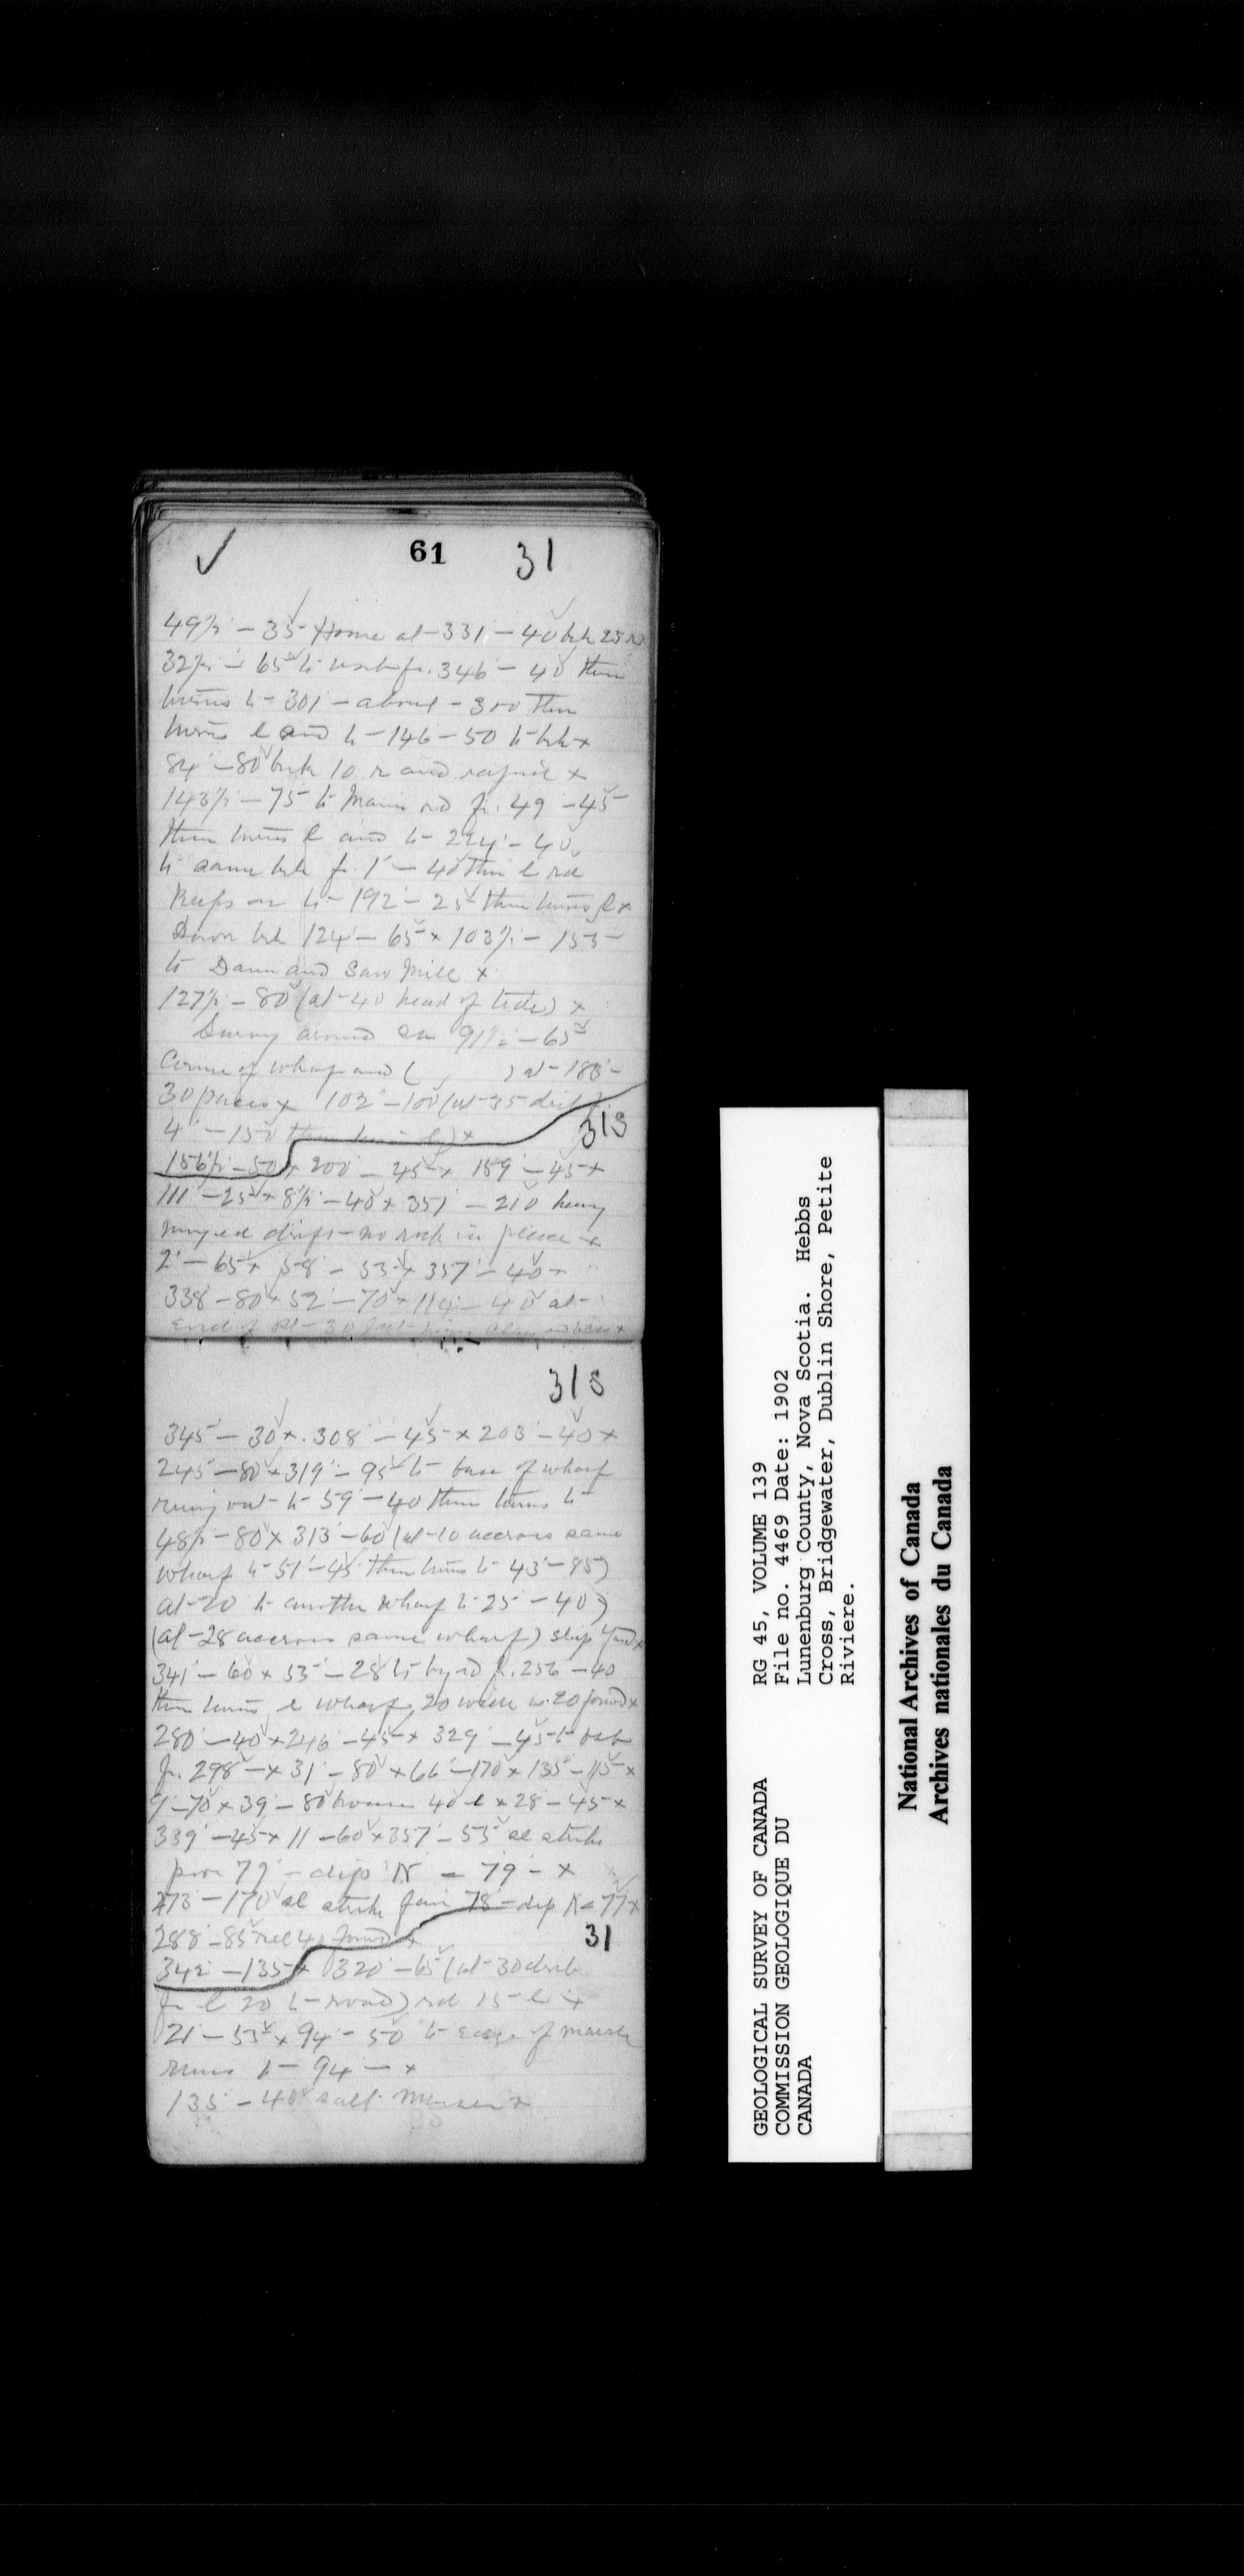 ✓ 61 31
49½ - 35 Home at 331 - 40 brk 25
32½ - 65 to fr. 346 - 40 then
turns to 301 - about - 300 then
turns l and to 146 - 50 to brk x
84 - 80 brk 10 r and x
143½ - 75 to Main rd fr. 49 - 45
then turns l and to 224 - 40
to same brk fr. 1 - 40 then l rd
Keeps on to 192 - 25 then turns l x
Down brk 124 - 65 x 103½ - 155
to Dam and Saw Mill x
127½ - 80 (at 40 head of tide) x
91½ - 65
Corner of wharf and ( ) at 183 -
30 paces x 102 - 100 (at 35
4 - 150 then x 313
156½ - 50 x 200 - 45 x 159 - 45 x
111 - 25 x 8½ - 40 x 351 - 210 heavy
drift - no rock in place x
2 - 65 x 58 - 55 x 357 - 40 x
338 - 80 x 52 - 70 x 114 - 40 at
End of pt - 30 feet
313
345 - 30 x 308 - 45 x 203 - 40 x
245 - 80 x 319 - 95 to base of wharf
runing out to 59 - 40 then turns to
48½ - 80 x 313 - 60 (at 10 accross same
wharf to 51 - 45 then turns to 43 - 85)
at 20 to another wharf to 25 - 40)
(at 28 accross same wharf) ship yard x
341 - 60 x 53 - 28 to by rd fr. 256 - 40
then turns l wharf 20 wide
280 - 40 x 246 - 45 x 329 - 45 to
fr. 298 - x 31 - 80 x 66 - 170 x 135 - 115 x
9 - 70 x 39 - 80 house 40 l x 28 - 45 x
339 - 45 x 11 - 60 x 357 - 55 sl strike
79 - dip N = 79 - x
273 - 170 sl strike 78 - dip N = 77 x
288 - 85 x 31
342 - 135 x 320 - 65 (at 30
fr l 20 to road) rd 15 l x
21 - 55 x 94 - 50 to edge of marsh
runs to 94 - x
135 - 40 salt x
RG 45, VOLUME 139
File no. 4469 Date: 1902
Lunenburg County, Nova Scotia. Hebbs
Cross, Bridgewater, Dublin Shore, Petite
Riviere.
GEOLOGICAL SURVEY OF CANADA
COMMISSION GEOLOGIQUE DU
CANADA
National Archives of Canada
Archives nationales du Canada